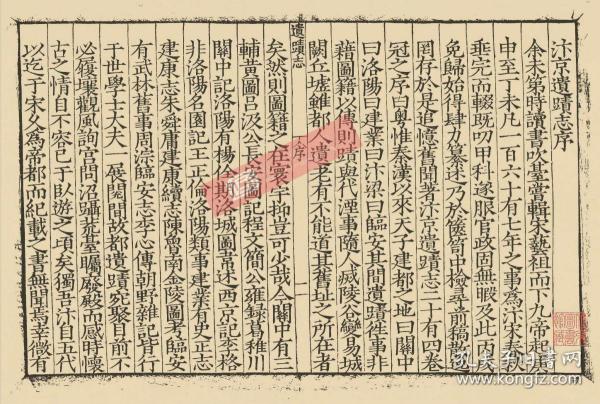 汴京遺蹟志序
余未第時讀書吹臺嘗輯宋藝祖而下九帝起庚
申至丁未凡一百六十有七年之事為汴宋春秋
垂完而輟既叨甲科遂服官政固無暇及此丙戌
免歸始得肆力纂述乃於篋笥中檢尋前稿散
罔存於是追憶舊聞著汴京遺蹟志二十有四卷
冠之序曰粤惟秦漢以來天子建都之地曰關中
曰洛陽曰建業曰汴梁曰臨安其間遺蹟徃事非
藉圖籍以傳則蹟與代湮事隨人滅陵谷變易城
闕丘墟雖都人遺老有不能道其舊址之所在者
矣然則圖籍之在寰宇抑豈可少哉今關中有三
輔黄圖吕汲公長安圖記程文簡公雍録葛稚川
關中記洛陽有楊
期洛城圖韋述西京記李格
非洛陽名園記王正倫洛陽類事建業有史正志
建康志朱舜庸建康續志陳魯南金陵圖考臨安
有武林舊事周淙臨安志李心傳朝野雜記皆行
于世學士大夫一展閲間故都遺蹟宛聚目前不
必履壤觀風詢宫問沼躡荒臺矚廢殿而感時懷
古之情自不容已于卧遊之頃矣獨吾汴自五代
以迄于宋久為帝都而紀載之書無聞焉幸微有
遺蹟志
序
一
孔夫子旧书网
www.kongfz.com